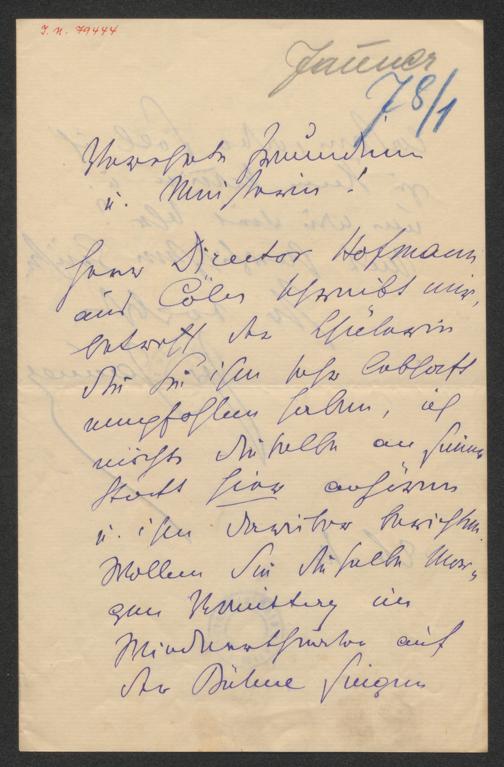 J. N. 79444
Jauner
78/1
Verehrte Freundin
u. Meisterin!
Herr Director Hofmann
aus Cöln schreibt mir,
betreff der Schülerin
die Sie ihm sehr lebhaft
empfohlen haben, ich
möchte dieselbe an seiner
statt hier anhören
u. ihm darüber berichten.
Wollen Sie dieselbe Mor„
gen Donnerstag im
auf
der Bühne singen